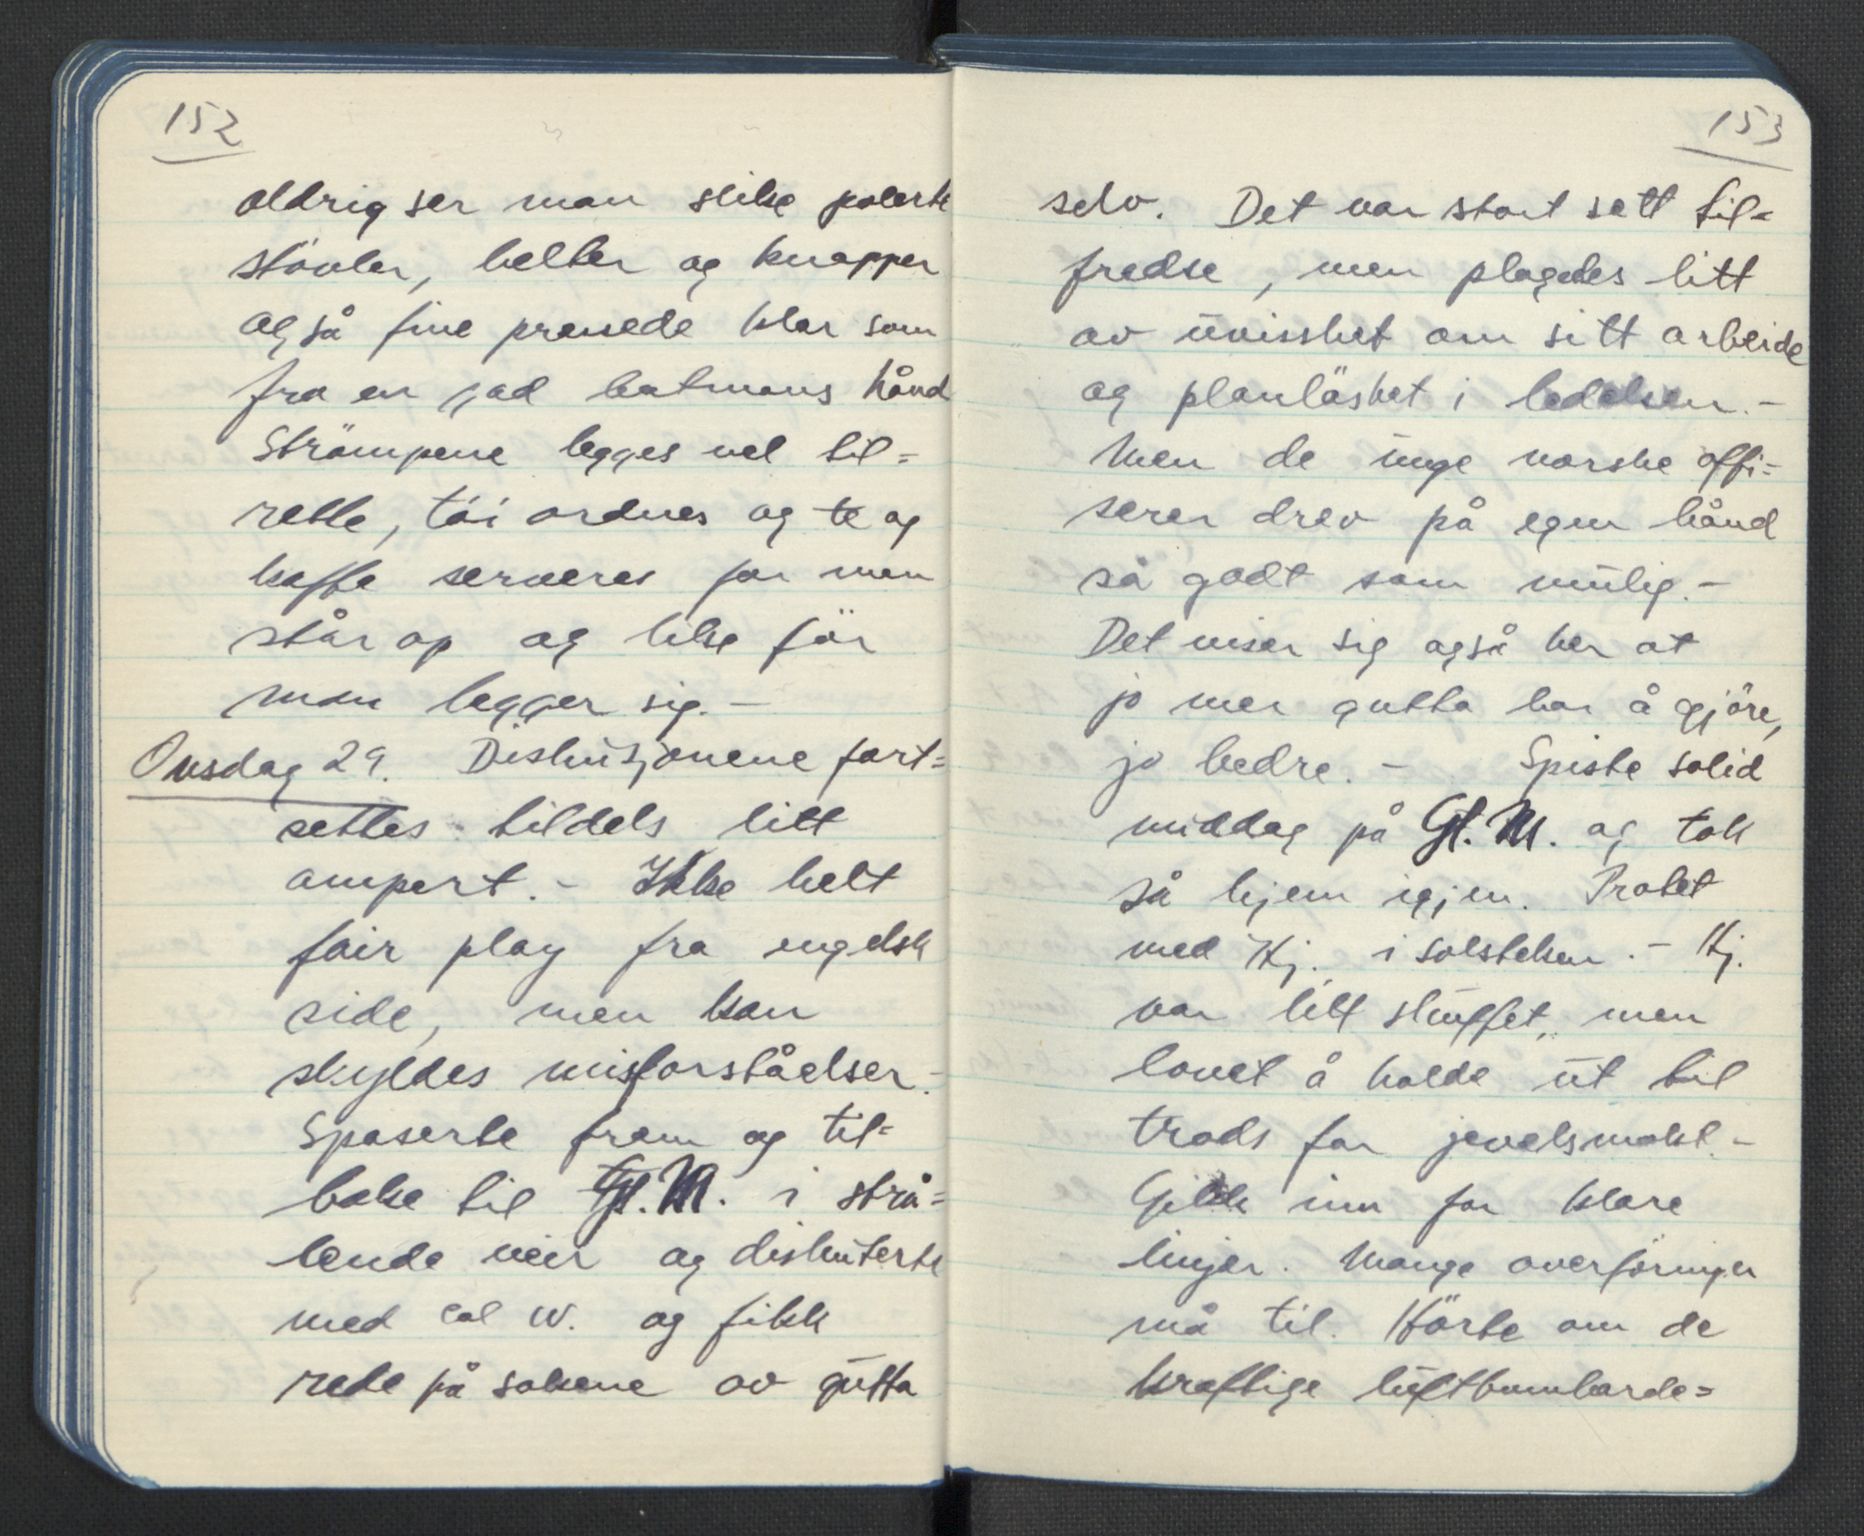 152
aldrig ser man slike polerte
stövler, belter og knapper
også fine pressede klær som
fra en god batmans hånd
Strömpene legges vel til=
rette, töi ordnes og te og
kaffe serveres før man
står op og like för
man legger sig. -
Onsdag 29. Diskusjonene fort=
settes tildels litt
ampert. - Ikke helt
fair play fra engelsk
side, men kan
skyldes misforståelser.
Spaserte frem og til=
bake til Gl. M. i strå=
lende veir og diskuterte
med Col W. og fikk
rede på sakene av gutta
153
selv. Det var stort sett til=
fredse, men plagedes litt
av uvisshet om sitt arbeide
og planlöshet i ledelsen. -
Men de unge norske offi=
serer drev på egen hånd
så godt som mulig. -
Det viser sig også her at
jo mer gutta har å gjöre,
jo bedre. - Spiste solid
middag på Gl. M. og tok
så hjem igjen. Pratet
med Hj. i solsteken. - Hj.
var litt skuffet, men
lovet å holde ut til
trods for jevelsmakt. -
Gikk inn for klare
linjer. Mange overföringer
må til. Hörte om de
kraftige luftbombarde=